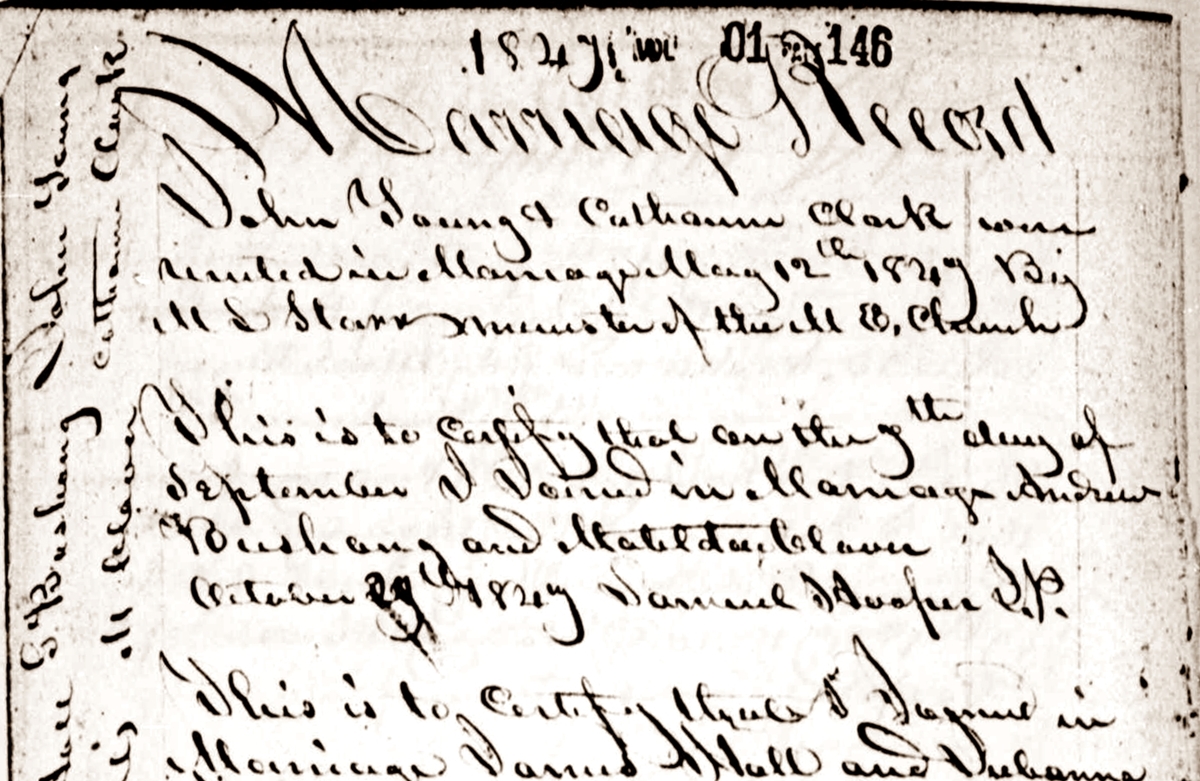 1847
01 146
Marriage Record
John Young & Catharine Clark were
united in Marriage May 12th 1847 By
M S Starr minister of the M E, Church
This is to Certify that on the 9th day of
September I Joined in Marriage Andrew
Bushong and Matilda Claver
October 29th 1847 Samuel Hooper J.P.
This is to Certify that I Joined in
Marriage James Hall and
John Young
Catharine Clark
Bushong
M Claver
Hall